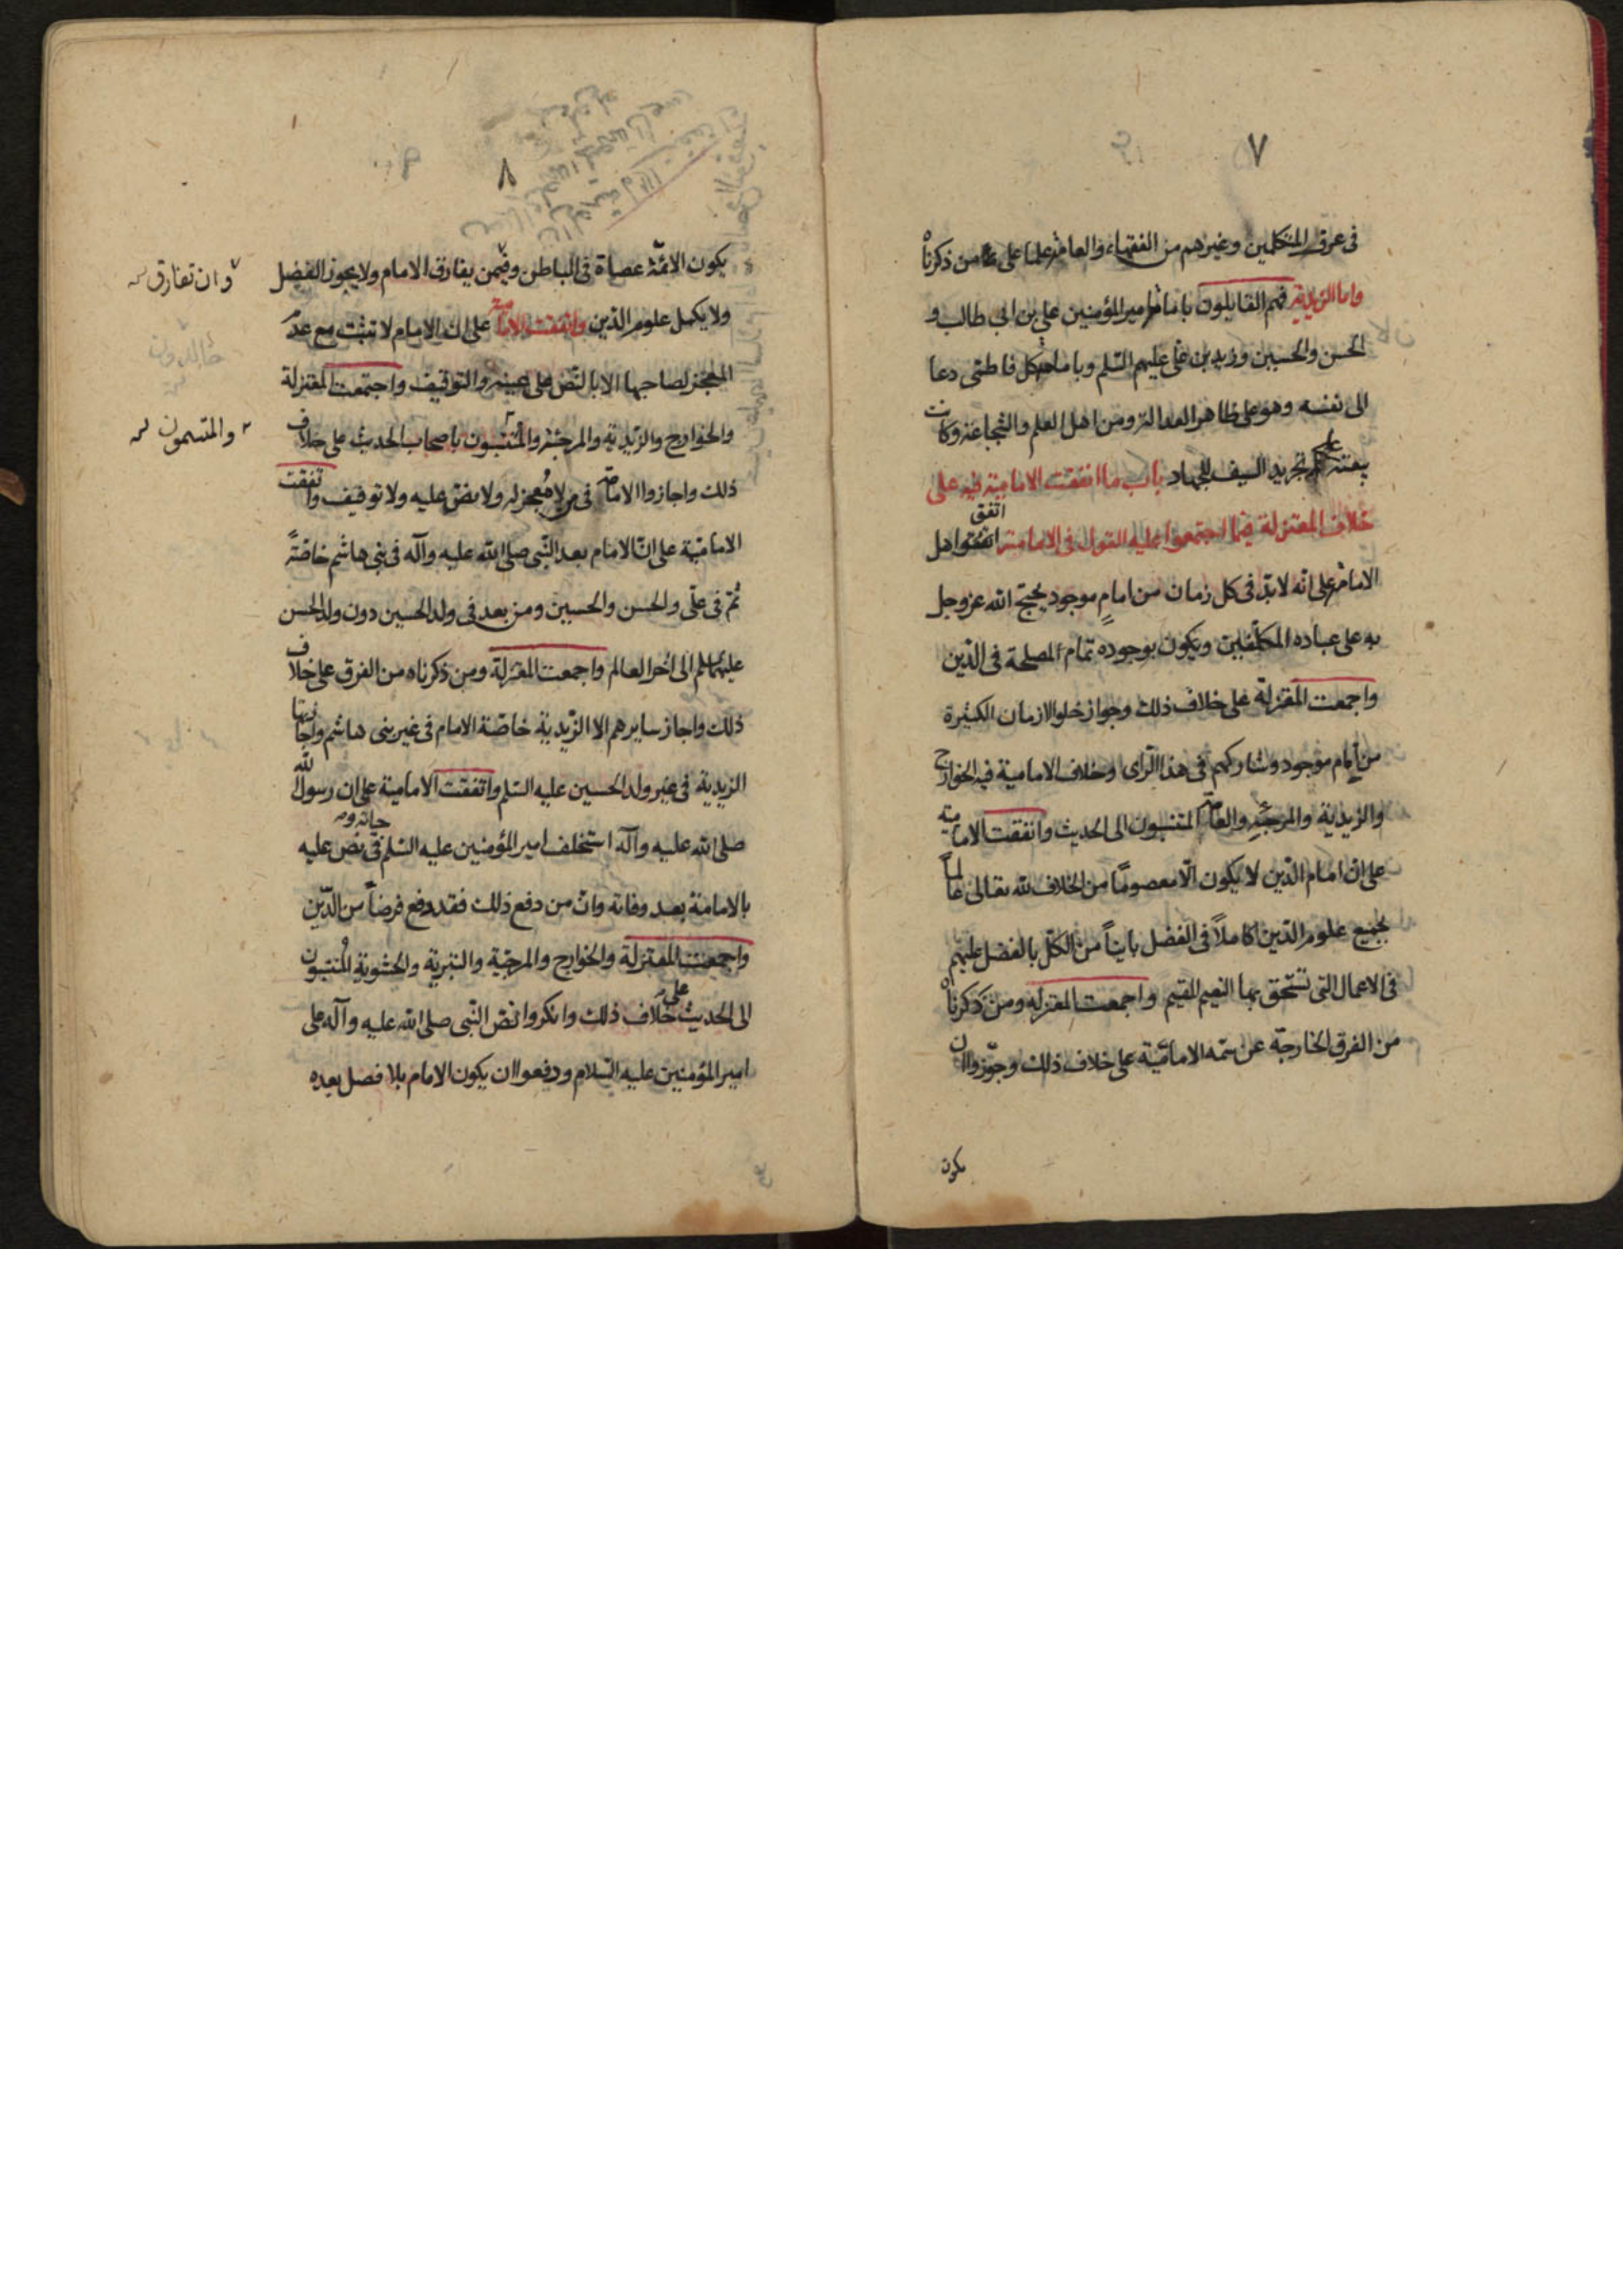 ٧
فى عرف المتكلمين وغيرهم من الفقهاء والعامة علما على من ذكرناه
واما الزيدية فهم القايلون بامامة امير المؤمنين علي بن ابى طالب و
الحسن والحسين وزيد بن على عليهم السّلم وبامامة كل فاطمى دعا
الى نفسه وهو على ظاهر العدالة ومن اهل العلم والشجاعة وكانت
بيعته على تجريد السيف للجهاد باب ما اتفقت الامامية فيه على
خلاف المعتزلة فيما اجتمعوا عليه القول فى الامامة اتفق اهل
الامامة على انّه لابدّ فى كل زمان من امامٍ موجود يحتج الله عزوجل
به على عباده المكلّفين ويكون بوجوده تمام المصلحة فى الدّين
واجمعت المعتزلة على خلاف ذلك وجواز خلو الازمان الكثيرة
من امام موجود وشاركهم فى هذا الرّاى وخلاف الامامية فيه الخوارج
والزيدية والمرجئة والعامة المنتسبون الى الحديث واتفقت الامامية
على انّ امام الدّين لا يكون الّا معصومًا من الخلاف لله تعالى عالماً
بجميع علوم الدّين كاملاً فى الفضل بايناً من الكلّ بالفضل عليهم
فى الاعمال التى تستحق بها النعيم المقيم واجمعت المعتزلة ومن ذكرناه
من الفرق الخارجة عن سمّه الاماميّة على خلاف ذلك وجوّزوا ان
يكون
٨
يكون الائمّة عصاة فى الباطن وفيمن يقارق الامام ولا يجوز الفضل
وان تفارق
ولا يكمل علوم الدّين واتفقت الامامية على ان الامام لا تثبت مع عدم
المعجز لصاحبها الا بالنّص على عينه والتوقيف واجتمعت المعتزلة
والخوارج والزّيدية والمرجئة والمنتسبون باصحاب الحديث على خلاف
والمتسمون
ذلك واجازوا الامامة فى من لا معجز له ولا نصّ عليه ولا توقيف واتفقت
الاماميّة على انّ الامام بعد النّبى صلى الله عليه وآله فى بنى هاشم خاصّةً
ثمّ فى علّى والحسن والحسين ومن بعد فى ولد الحسين دون ولد الحسن
عليهما السلم الى اخر العالم واجمعت المعتزلة ومن ذكرناه من الفرق على خلاف
ذلك واجاز سايرهم الا الزّيدية خاصّة الامام فى غير بنى هاشم واجازتها
الزيدية فى غير ولد الحسين عليه السّلم واتفقت الامامية على ان رسول الله
صلى الله عليه وآله استخلف امير المؤمنين عليه السّلم فى حياته ونص عليه
بالامامة بعد وفاته وانّ من دفع ذلك فقد دفع فرضاً من الدّين
واجمعت المعتزلة والخوارج والمرجئة والبترية والحشوية المنتسبون
الى الحديث على خلاف ذلك وانكروا نصّ النّبى صلى الله عليه وآله على
امير المؤمنين عليه السّلام ودفعوا ان يكون الامام بلا فصل بعده